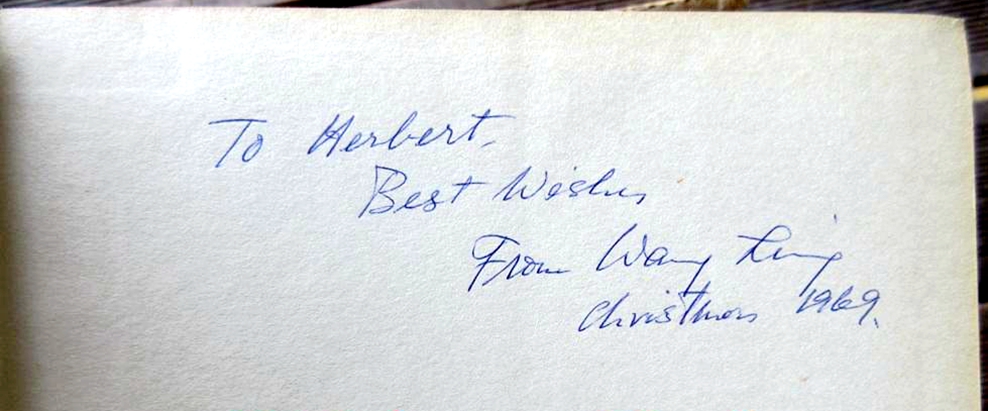 To Herbert,
Best Wishes
From Wang Ling
Christmas 1969.